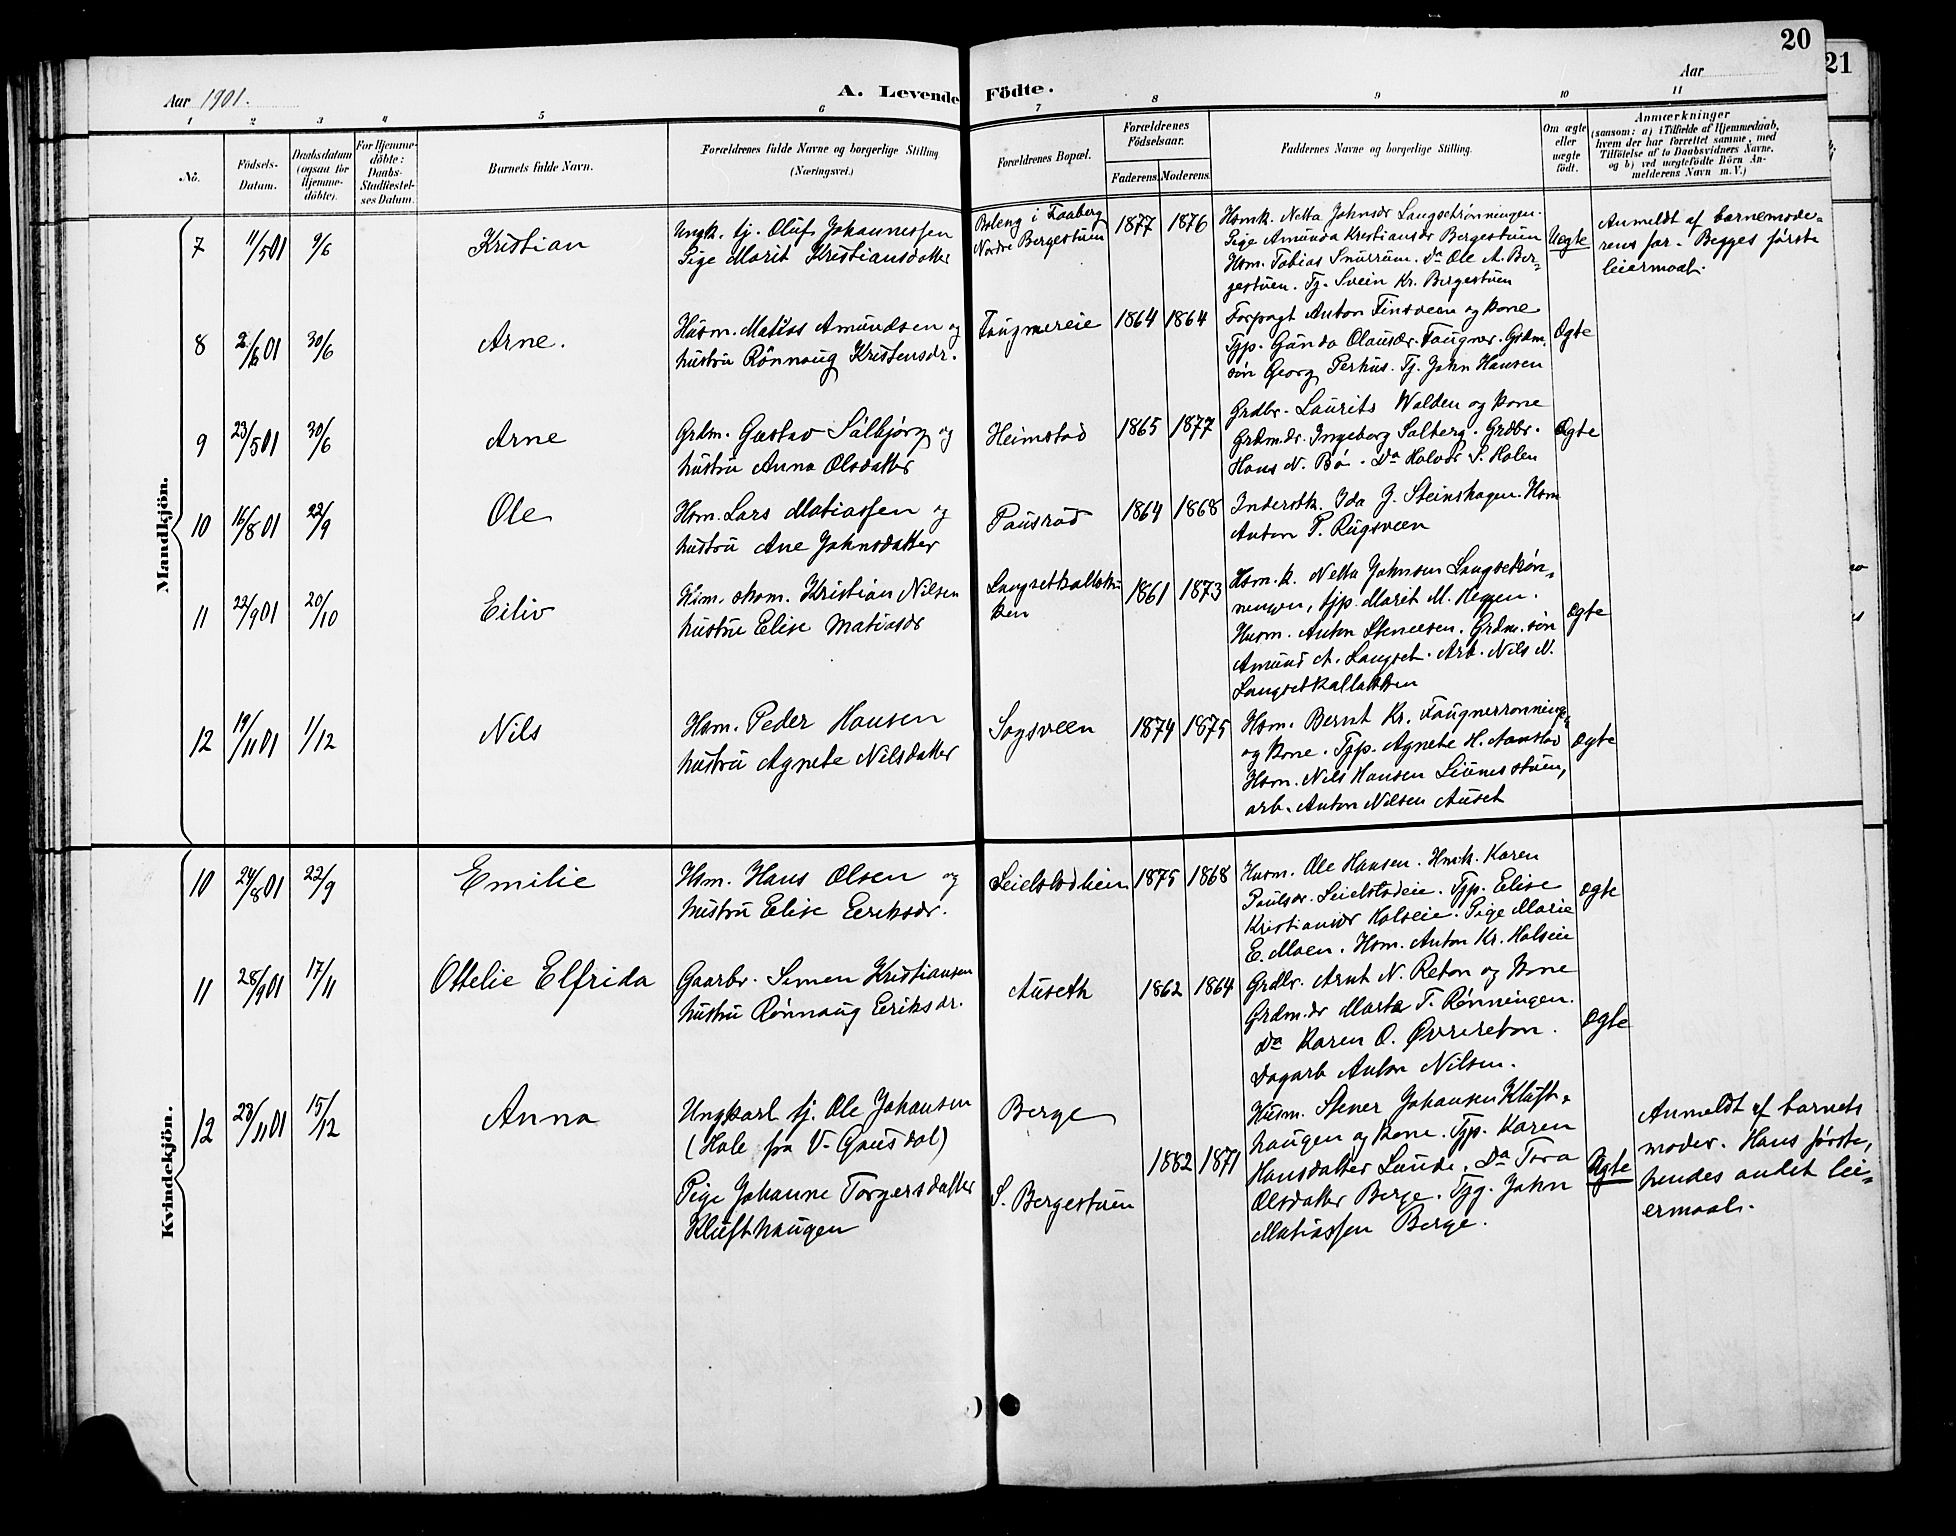 20
21
Aar 1901.
A. Levende Födte.
Aar
1 2 3 4 5 6 7 8 9 10 11
No.
Födsels-
Datum.
Daabsdatum
(ogsaa for
Hjemme-
döbte).
For Hjemme-
döbte:
Daabs-
Stadfæstel-
ses Datum.
Barnets fulde Navn.
Forældrenes fulde Navne og borgerlige Stilling
(Næringsvei.)
Forældrenes Bopæl.
Forældrenes
Födselsaar.
Faderens. Moderens.
Faddernes Navne og borgerlige Stilling.
Om ægte
eller
uægte
födt.
Anmærkninger
(saasom: a) i Tilfælde af Hjemmedaab,
hvem der har forrettet samme, med
Tilföielse af to Daabsvidners Navne,
og b) ved uægtefödte Börn An-
melderens Navn m. V.)
Mandkjön.
7 11/5 01 9/6 Kristian
Ungk. tj. Oluf Johannessen
Pige Marit Kristiansdatter
Boleng i Faaberg
Nordre Bergestuen
1877 1876
Hsmk. Netta Johnsdr Langsetrønningen.
Pige Amunda Kristiansdr Bergestuen
Hsm. Tobias Snurrum. Do Ole A. Ber-
gestuen. Tj. Svein Kr. Bergestuen
Uægte
Anmeldt af barnemode-
rens far. Begges første
leiermaal.
8 2/6 01 30/6 Arne.
Husm. Matias Amundsen og
hustru Rönnaug Kristensdr.
Faugnereie
1864 1864
Forpagt Anton Finsveen og kone
Tjp. Gunda Olausdr. Faugner. Grdm.
søn Georg Perhus. Tj. John Hansen
Ægte
9 23/5 01 30/6 Arne
Grdm. Gustav Sulbjørg og
hustru Anna Olsdatter
Heimstad
1865 1877
Grdbr. Laurits Walden og kone
Grdm.dr. Ingeborg Salberg. Grdbr.
Hans N. Bø. Do Halvor S. Holen
Ægte
10 16/8 01 22/9 Ole
Hsm. Lars Matiassen og
hustru Ane Johnsdatter
Pausrud
1864 1868
Inderstk. Ida J. Steinshagen. Hsm
Anton P. Rugsveen
11 22/9 01 20/10 Eiliv
Hsm. skom. Kristian Nilsen
hustru Elise Matiasdr
1861 1873
Hsm.k. Netta Johnsen Langsetrøn-
ningen, tjp. Marit M. Heggen.
Husm. Anton Stenersen. Grdm. søn
Amund A. Langset. Arb. Nils N.
Langsetkallbakken
Ægte
12 19/11 01 1/12 Nils
Hsm. Peder Hansen
hustru Agnete Nilsdatter
Sagsveen
1874 1875
Hsm. Bernt Kr. Faugnerrønningen
og kone. Tjp. Agnete H. Aanstad
Hsm. Nils Hansen Liunesstuen,
arb. Anton Nilsen Auset
Ægte
Kvindekjön.
10 24/8 01 22/9 Emilie
Hsm. Hans Olsen og
hustru Elise Eeriksdr.
Seielstadheien
1875 1868
Husm. Ole Hansen. Hmk. Karen
Paulsdr. Seielstadeie. Tjp. Elise
Kristiansdr Holseie. Pige Marie
E. Moen. Hsm. Anton Kr. Holseie
Ægte
11 28/9 01 17/11 Ottelie Elfrida
Gaarbr. Simen Kristiansen
hustru Rønnaug Eeriksdr.
Auseth
1862 1864
Grdbr. Arnt N. Reton og kone
Grdm.dr Marte T. Rønningen.
Do Karen O. Øvrereton.
Dagarb Anton Nilsen.
Ægte
12 23/11 01 15/12 Anna
Ungkarl tj. Ole Johansen
(Hole fra V. Gausdal)
Pige Johanne Torgersdatter
Klufthaugen
Berge
S. Bergestuen
1882 1871
Husm. Stener Johansen Kluft-
haugen og kone. Tjp. Karen
Hansdatter Lunde. Do Tora
Olsdatter Berge. Tjg. John
Matiassen Berge.
Uægte
Anmeldt af barnets
moder. Hans første,
hendes andet lei-
ermaal.